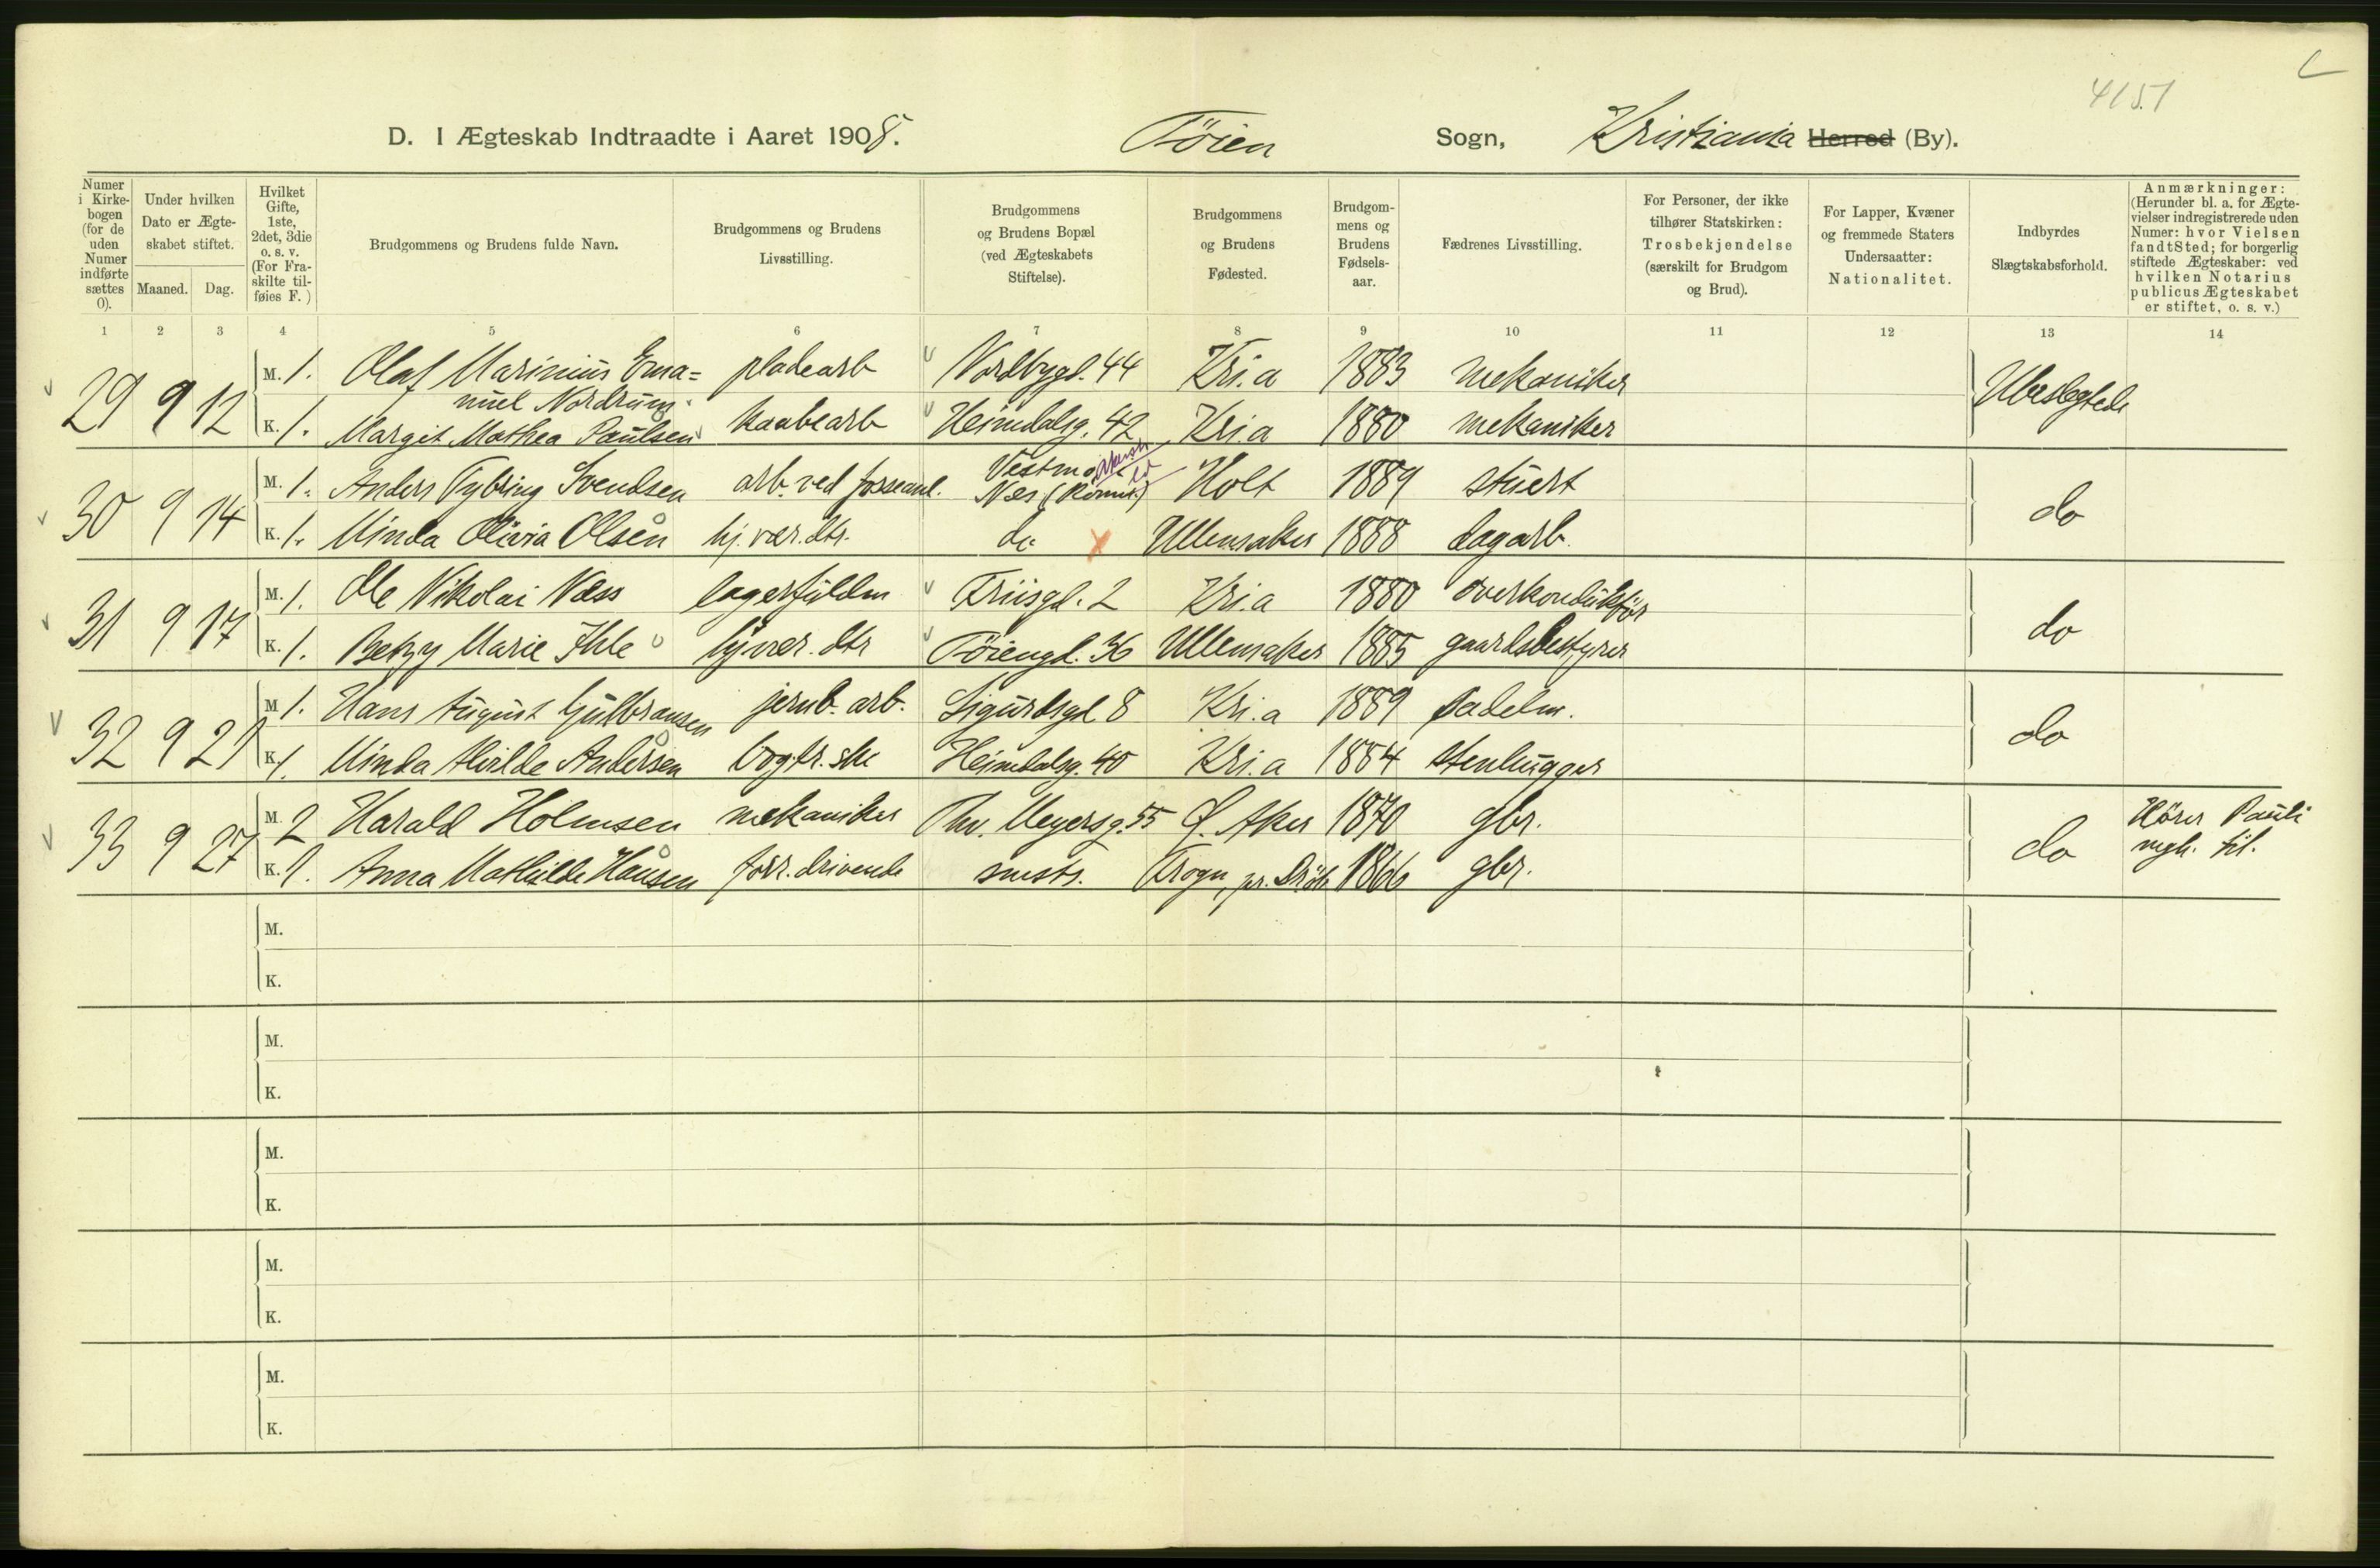 4151
D. I Ægteskab Indtraadte i Aaret 1908. Tøien Sogn, Kristiania Herred (By).
Numer i Kirkebogen (for de uden Numer indførte sættes 0).
Under hvilken Dato er Ægteskabet stiftet.
Maaned. Dag.
Hvilket Gifte, 1ste, 2det, 3die o. s. v. (For Fraskilte tilføies F.)
Brudgommens og Brudens fulde Navn.
Brudgommens og Brudens Livsstilling.
Brudgommens og Brudens Bopæl (ved Ægteskabets Stiftelse).
Brudgommens og Brudens Fødested.
Brudgommens og Brudens Fødselsaar.
Fædrenes Livsstilling.
For Personer, der ikke tilhører Statskirken: Trosbekjendelse (særskilt for Brudgom og Brud).
For Lapper, Kvæner og fremmede Staters Undersaatter: Nationalitet.
Indbyrdes Slægtskabsforhold.
Anmærkninger: (Herunder bl. a. for Ægtevielser indregistrerede uden Numer: hvor Vielsen fandt Sted; for borgerlig stiftede Ægteskaber: ved hvilken Notarius publicus Ægteskabet er stiftet, o. s. v.)
1 2 3 4 5 6 7 8 9 10 11 12 13 14
29 9 12 M. 1. Olaf Marinius Ema= nuel Nordrum pladearb Nordbygd. 44 Kri.a 1883 mekaniker Ubeslegtede
K. 1. Margit Mathea Paulsen kaabearb Heimdalsg. 42 Kri.a 1880 mekaniker
30 9 14 M. 1. Anders Tybring Svendsen arb. ved fosseanl. Næs Holt 1889 stuert do
K. 1. Minda Olivia Olsen hj. vær. dtr. do Ullensaker 1888 dagarb.
31 9 17 M. 1. Ole Nikolai Næss lagerfuldm Friisgd. 2 Kri.a 1880 overkonduktør do
K. 1. Betzy Marie Ihle hj vær. dtr Tøiengd. 36 Ullensaker 1885 gaardsbestyrer
32 9 21 M 1. Hans August Gulbransen jernb. arb. Sigurdsgd 8 Kri.a 1889 sadelm. do
K 1. Minda Alvilde Andersen bogtr. ske Heimdalsg. 40 Kri.a 1884 stenhugger
33 9 27 M. 2 Harald Holmsen mekaniker Thv. Meyersg. 55 Ø. Aker 1870 gbr. do Hører Pauli mgh. til.
K. 1. Anna Mathilde Hansen forr. drivende smsts. Krogn, pr. Drøb 1866 gbr.
M.
K.
M.
K.
M.
K.
M.
K.
M.
K.